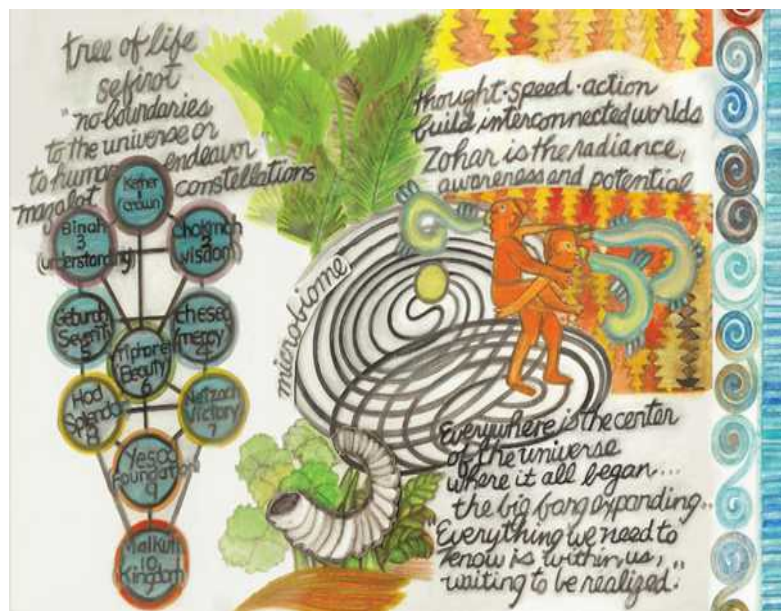 tree of life
sefirot
"no boundaries
to the universe or
to human endeavor
mazalot constellations
Keter
crown
Binah
3
(understanding)
chokmah
2
wisdom
Geburah
Severit
5
chesed
(mercy)
4
Tiphoret
(Beauty)
6
Hod
Splendor
8
Netzach
Victory
7
Yesod
Foundation
9
Malkuth
10
Kingdom
microbiome
thought·speed·action
build interconnected worlds
Zohar is the radiance,
awareness and potential
Everywhere is the center
of the universe
where it all began...
the big bang expanding..
"Everything we need to
know is within us,
waiting to be realized."